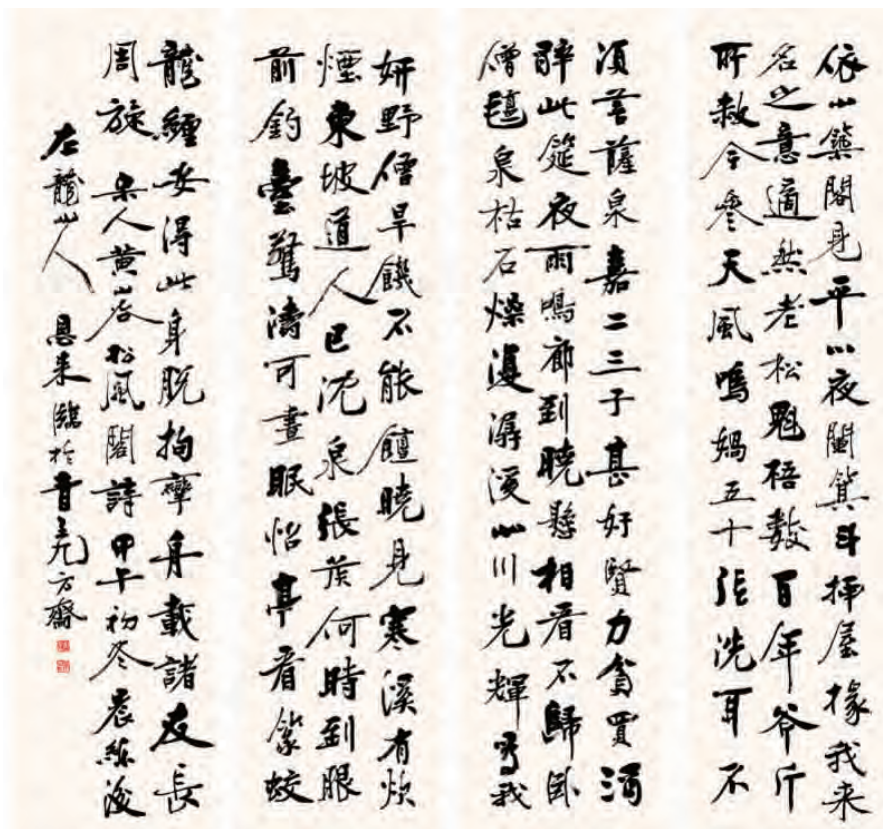 依山築閣見平川夜闌箕斗插屋椽我来
名之意適然老松魁梧數百年斧斤
所赦今參天風鳴媧五十弦洗耳不
須菩薩泉嘉二三子甚好賢力貧買酒
醉此筵夜雨鳴廊到曉懸相看不歸臥
僧氈泉枯石燥復潺湲山川光輝為我
妍野僧旱饑不能饘曉見寒溪有炊
煙東坡道人已沈泉張侯何時到眼
前釣臺驚濤可晝眠怡亭看篆蛟
龍纏安得此身脫拘攣舟載諸友長
周旋 宋人黄山谷松風閣詩甲午初冬
龍山人 恩来臨於晉元方齋